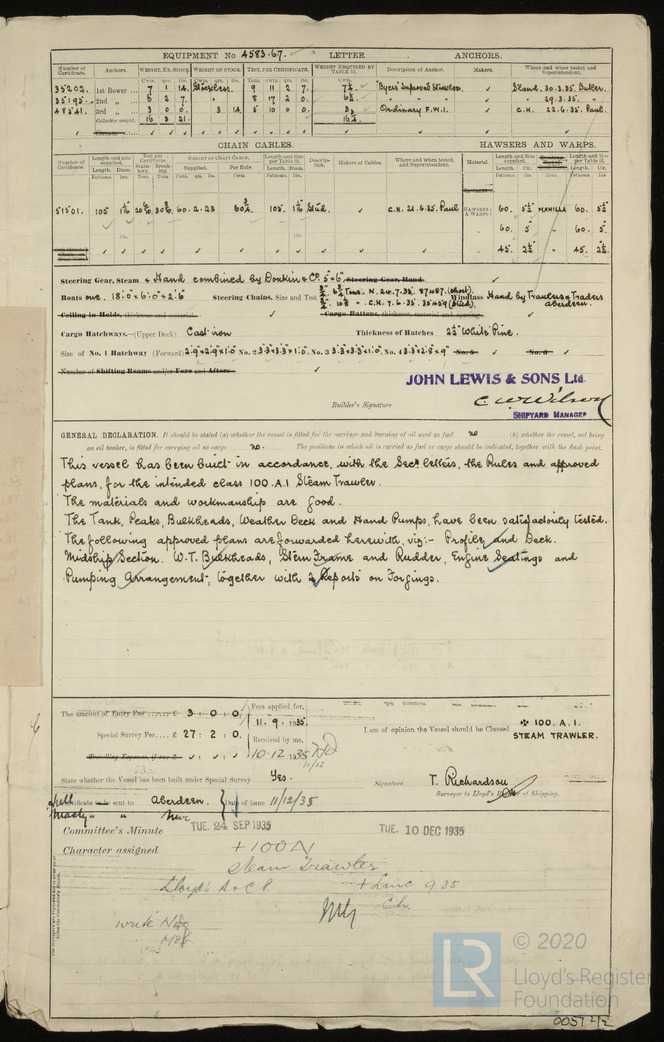 EQUIPMENT No 4583.67. LETTER ANCHORS.
Number of Certificate. Anchors. WEIGHT, EX. STOCK. WEIGHT OF STOCK. TEST, PER CERTIFICATE. WEIGHT REQUIRED BY TABLE 53. Description of Anchor. Makers. Where and when tested and Superintendent.
35202. 1st Bower 7 1 14 Stockless. 9 11 2 7. 7½ "Byers" Improved Stockless Sland. 30.3.35. Butler.
35195. 2nd 6 2 7. 8 17 2 0. 6½ 29.3.35.
48541. 3rd 3 0 0. 3 14 5 10 0 0. Ordinary F.W.I. C.H. 22.6.35. Paul.
Collective weight. 16 3 21. 16¼
CHAIN CABLES. HAWSERS AND WARPS.
Number of Certificate. Length and size supplied. Test per Certificate. WEIGHT OF CHAIN CABLE. Length and size per Table 53. Description. Makers of Cables. Where and when tested, and Superintendent. Material. Length and size supplied. Length and size per Table 53.
51501. 105 60. 2. 23 60¾ 105. Stud. C.H. 21.6.35. Paul HAWSERS & WARPS 60. 5½ MANILLA 60. 5½
60. 5" 60. 5"
45. 2½ 45. 2½
Steering Gear, Steam & Hand combined by Donkin & Co. 5"x6" Steering Gear, Hand
Boats one. 18'.0"x6'.0"x2'.6 Steering Chains, Size and Test Windlass Hand by Trawlers & Traders Aberdeen.
Ceiling in Holds, thickness and material Cargo Battens, thickness, material and spacing
Cargo Hatchways.—(Upper Deck) Cast iron Thickness of Hatches 2½" White Pine.
Size of No. 1 Hatchway (Forward) 2'.9"x2'.9"x1'.0 No. 2 3'.3"x3'.3"x1'.0. No. 3 3'.3"x3'.3"x1'.0. No. 4 3'.3"x2'.8"x9" No. 5 No. 6
Number of Shifting Beams and/or Fore and Afters
JOHN LEWIS & SONS Ltd.
C W Wilson
Builder's Signature SHIPYARD MANAGER
GENERAL DECLARATION. It should be stated (a) whether the vessel is fitted for the carriage and burning of oil used as fuel no (b) whether the vessel, not being
an oil tanker, is fitted for carrying oil as cargo no. The positions in which oil is carried as fuel or cargo should be indicated, together with the flash point.
This vessel has been built in accordance, with the Secy's letters, the Rules and approved
plans, for the intended class 100.A.1 Steam Trawler.
The materials and workmanship are good.
The Tank, Peaks, Bulkheads, Weather Deck and Hand Pumps, have been satisfactorily tested.
The following approved plans are forwarded herewith, viz:— Profile and Deck.
Midship Section. W.T. Bulkheads, Stern Frame and Rudder, Engine Seatings and
Pumping Arrangement, together with 2 Reports on Forgings.
The amount of Entry Fee £ 3 : 0 : 0 Fees applied for,
11. 9. 1935.
Special Survey Fee £ 27 : 2 : 0. Received by me,
Travelling Expenses, if any £ 10.12.1935
I am of opinion the Vessel should be Classed ✠ 100. A.1.
STEAM TRAWLER.
State whether the Vessel has been built under Special Survey Yes.
Signature T. Richardson
Surveyor to Lloyd's Register of Shipping.
Certificate to be sent to Aberdeen. Date of issue 11/12/35
Committee's Minute TUE. 24 SEP 1935 TUE. 10 DEC 1935
Character assigned + 100A1
Steam Trawler
Lloyd's A & C P + LMC 9 35
C.L.
© 2020
Lloyd's Register
Foundation
LR